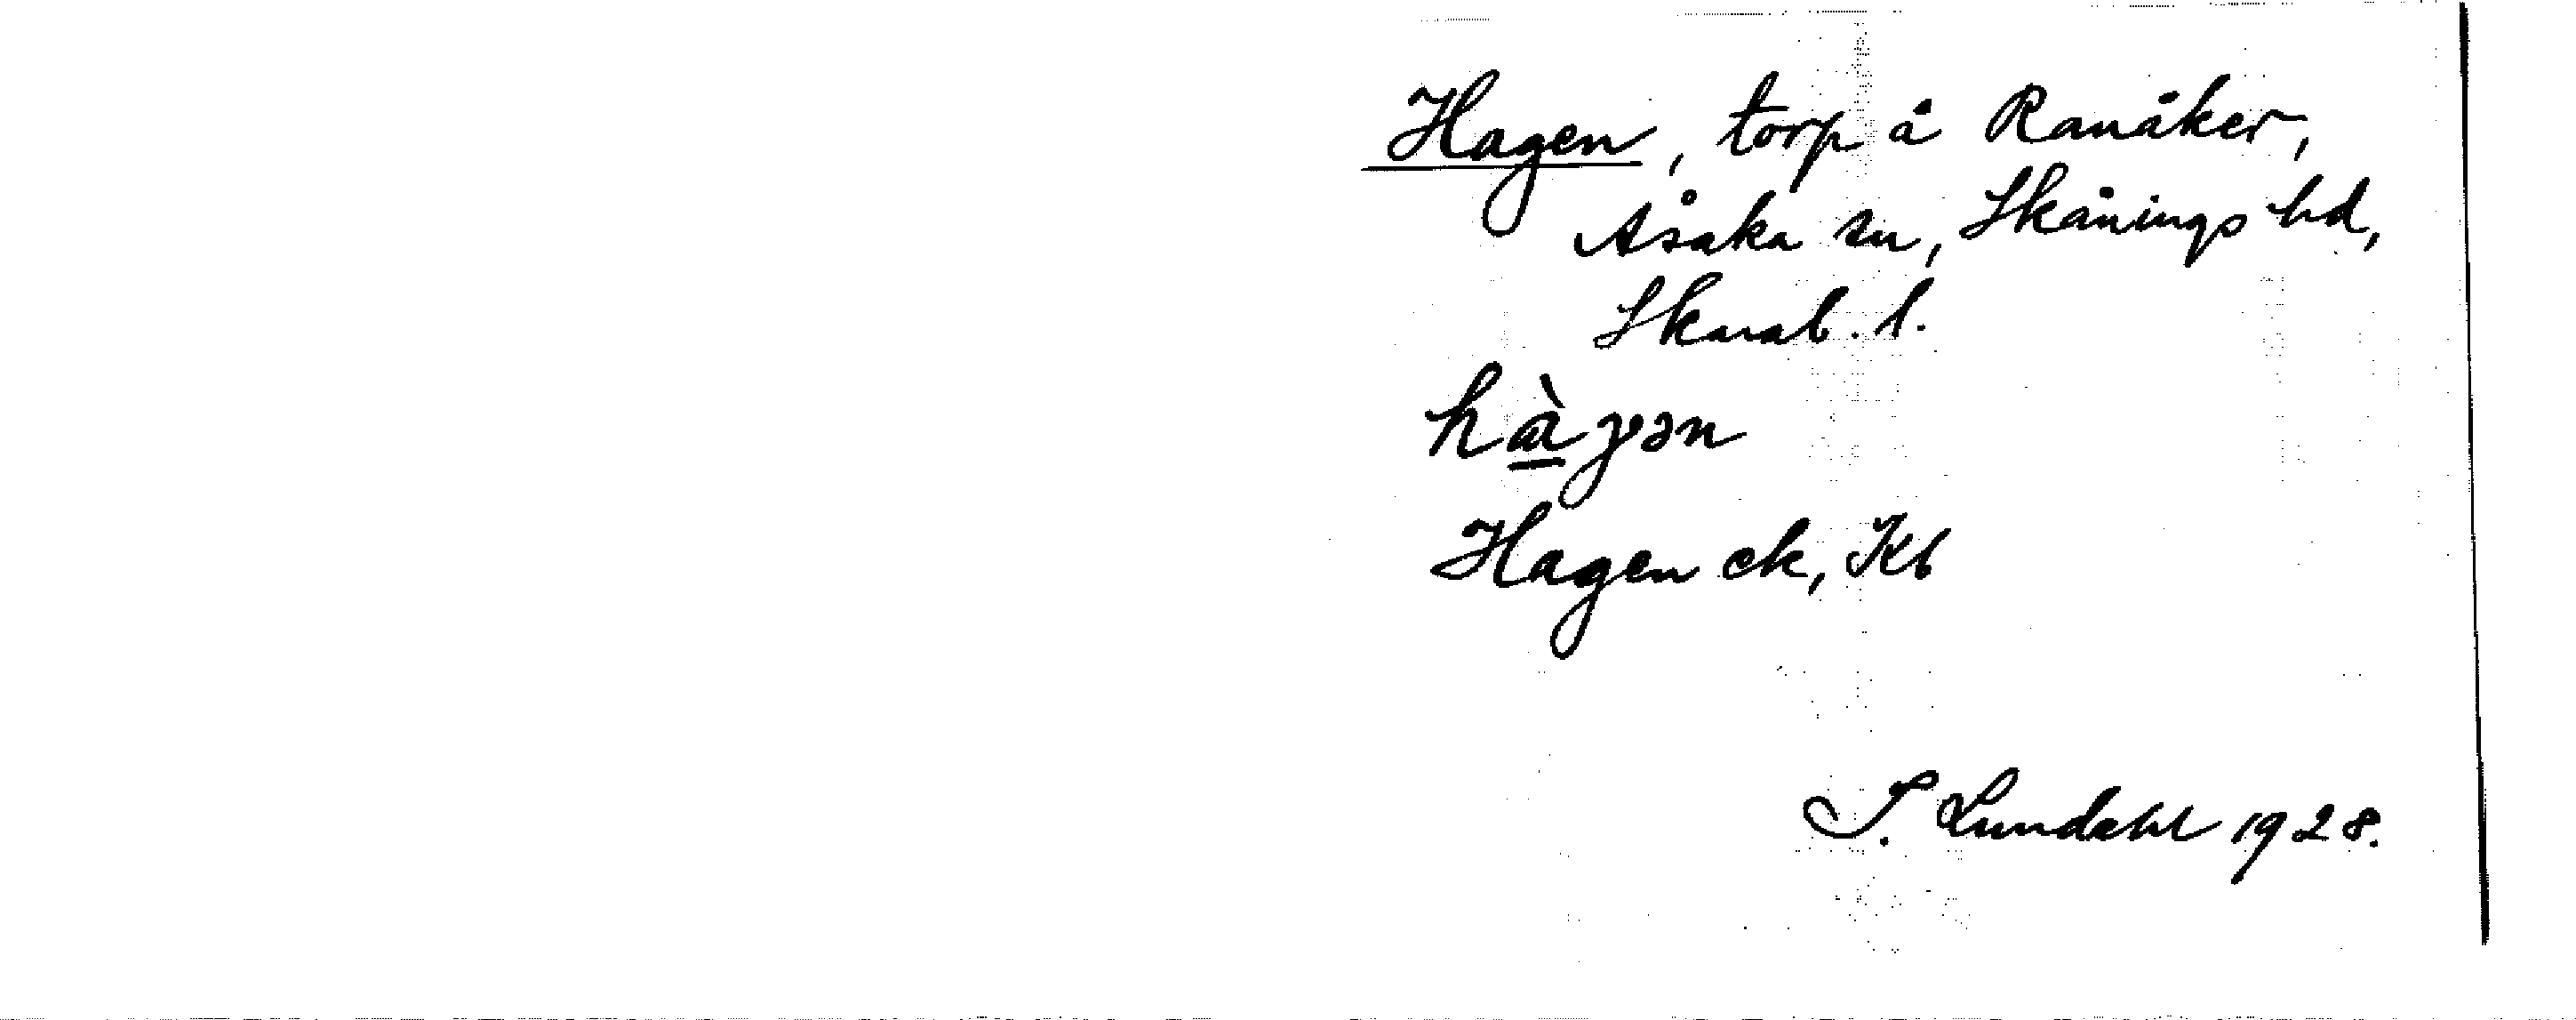 Hagen, torp å Ranåker,
Åsaka sn, Skånings hd,
Skarab. l.
hàγən
Hagen ek, Kb
S. Lundahl 1928.